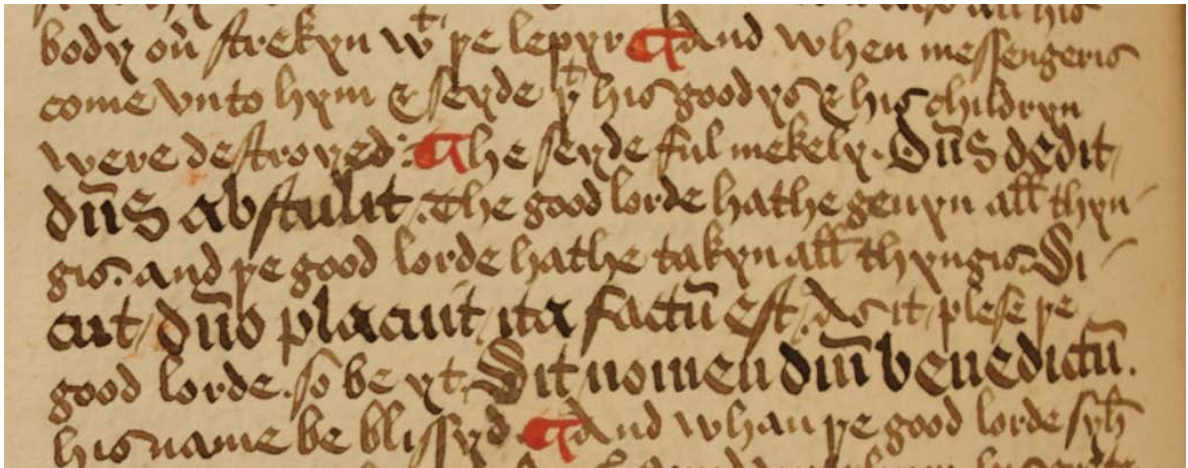 body ou̅ strekyn wᵗ þe lepyr ¶ And when messengeris
come vnto hym & seyde þᵗ his goodys & his childryn
were destroyed : ¶ he seyde ful mekely . Dn̅s dedit /
dn̅s abstulit . The good lorde hathe geuyn all̅ thyn
gis . and þe good lorde hathe takyn all̅ thyngis . Si /
cut / dn̅o placuit / ita factu̅ est / . As it / plese þe
good lorde . so be yt . Sit nomen dn̅i benedictu̅ .
his name be blissyd . ¶ And whan þe good lorde syh̅